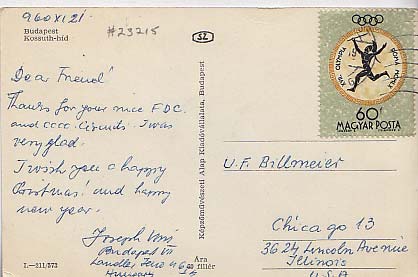 960 XI 21.
#23215
SZ
Budapest
Kossuth-híd
Dear Friend!
Thanks for your nice F.D.C.
and cccc. Circuits. I was
very glad.
I wish you a happy
Christmas! and happy
new year.
Joseph
Budapest VII
Landler Jenő
Hungary
I.—211/573
Ara
60 fillér
Képzőművészeti Alap Kiadóvállalata, Budapest
XVII. OLYMPIA RÓMA
60f
MAGYAR POSTA
U.F. Billmeier
Chicago 13
3624 Lincoln Avenue
Illinois
U.S.A